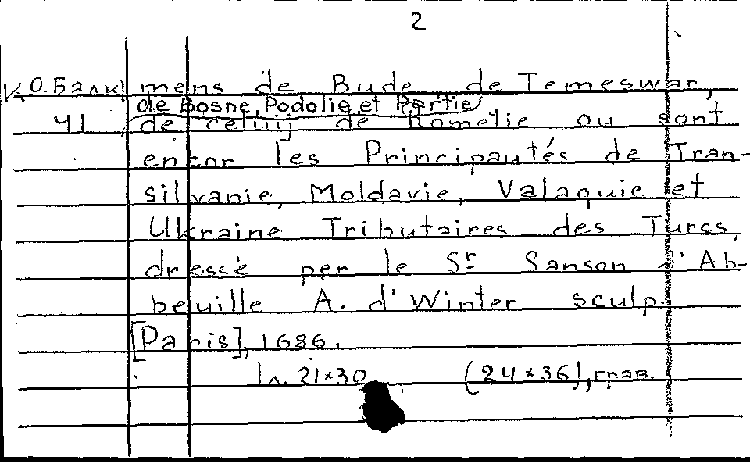 2
К О.Балк mens de Bude, de Temeswar,
de Bosne, Podolie et Partie
41 de celuij de Romelie ou sont
encor les Principautés de Tran-
silvanie, Moldavie, Valaquie et
Ukraine Tributaires des Turcs,
dressé per le Sr Sanson d'Ab-
beuille A. d'Winter sculp.
[Paris], 1686.
1 л. 21×30 (24×36), грав.